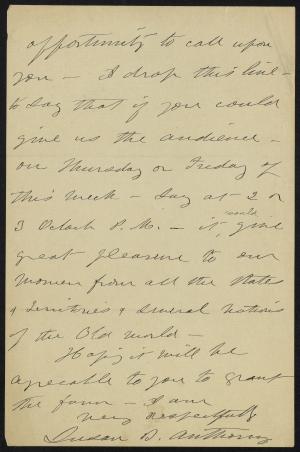 opportunity to call upon
you — I drop this line —
to say that if you could
give us the audience —
on Thursday or Friday of
this week — say at 2 or
3 Oclock P. M. — it would give
great pleasure to our
women from all the States
& Territories & several nations
of the Old world —
Hoping it will be
agreeable to you to grant
the favor — I am
very respectfully
Susan B. Anthony